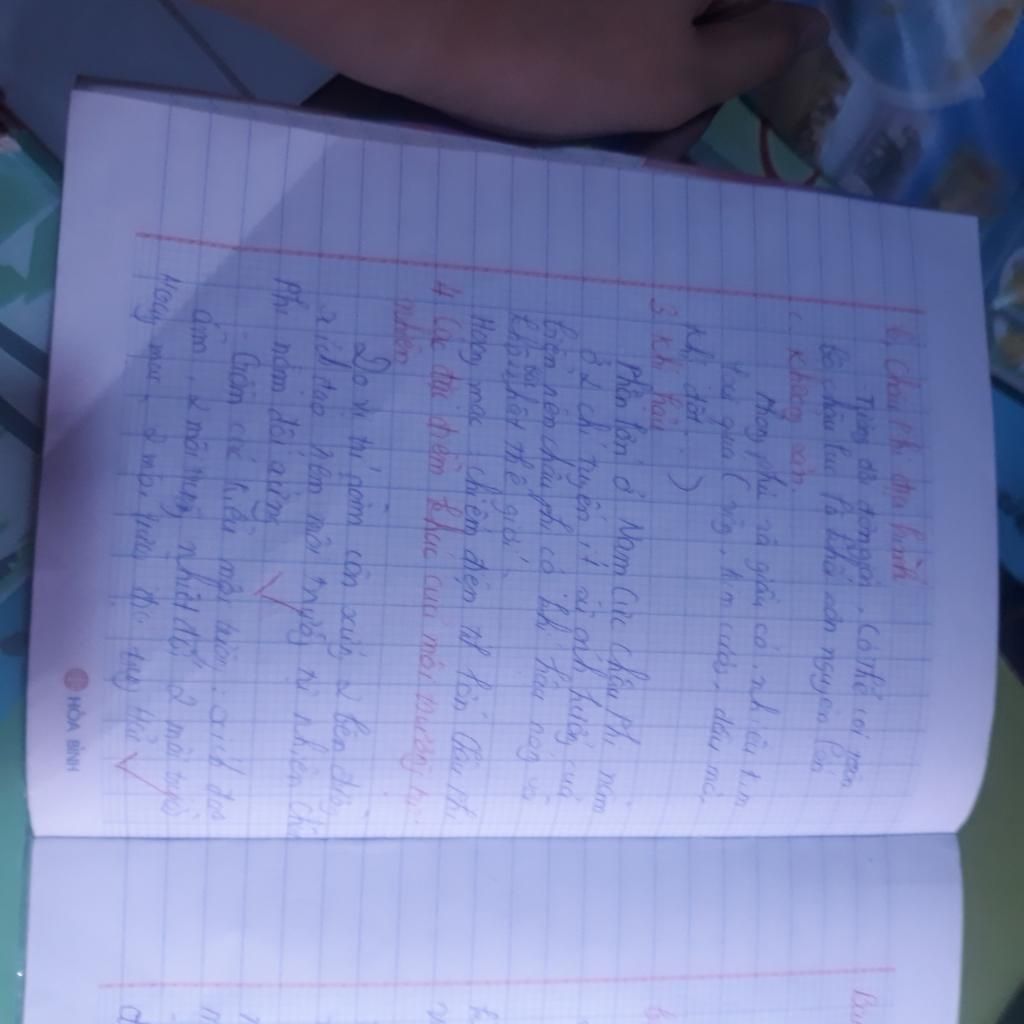 b, Châu Phi địa hình
Tương đối đơn giản. Có thể coi toàn
bộ châu lục là khối sơn nguyên lớn
c. khoáng sản.
Phong phú và giàu có nhiều kim
loại quý (vàng, kim cương, dầu mỏ,
khí đốt...)
3 khí hậu
Phần lớn ở Nam Cực Châu Phi nằm
ở 2 chí tuyến, ít ảnh hưởng của
biển nên châu phi có khí hậu nóng và
khô bậc nhất thế giới
Hoang mạc chiếm diện tích lớn Châu Phi
4 Các đặc điểm khác của môi trường tự
nhiên
Do vị trí nằm cân xứng 2 bên đường
xích đạo nên môi trường tự nhiên Châu
Phi nằm đối xứng
- Gồm các kiểu môi trường: xích đạo
ẩm, 2 môi trường nhiệt đới, 2 môi trường
Hoang mạc, 2 môi trường địa trung Hải
HÒA BÌNH